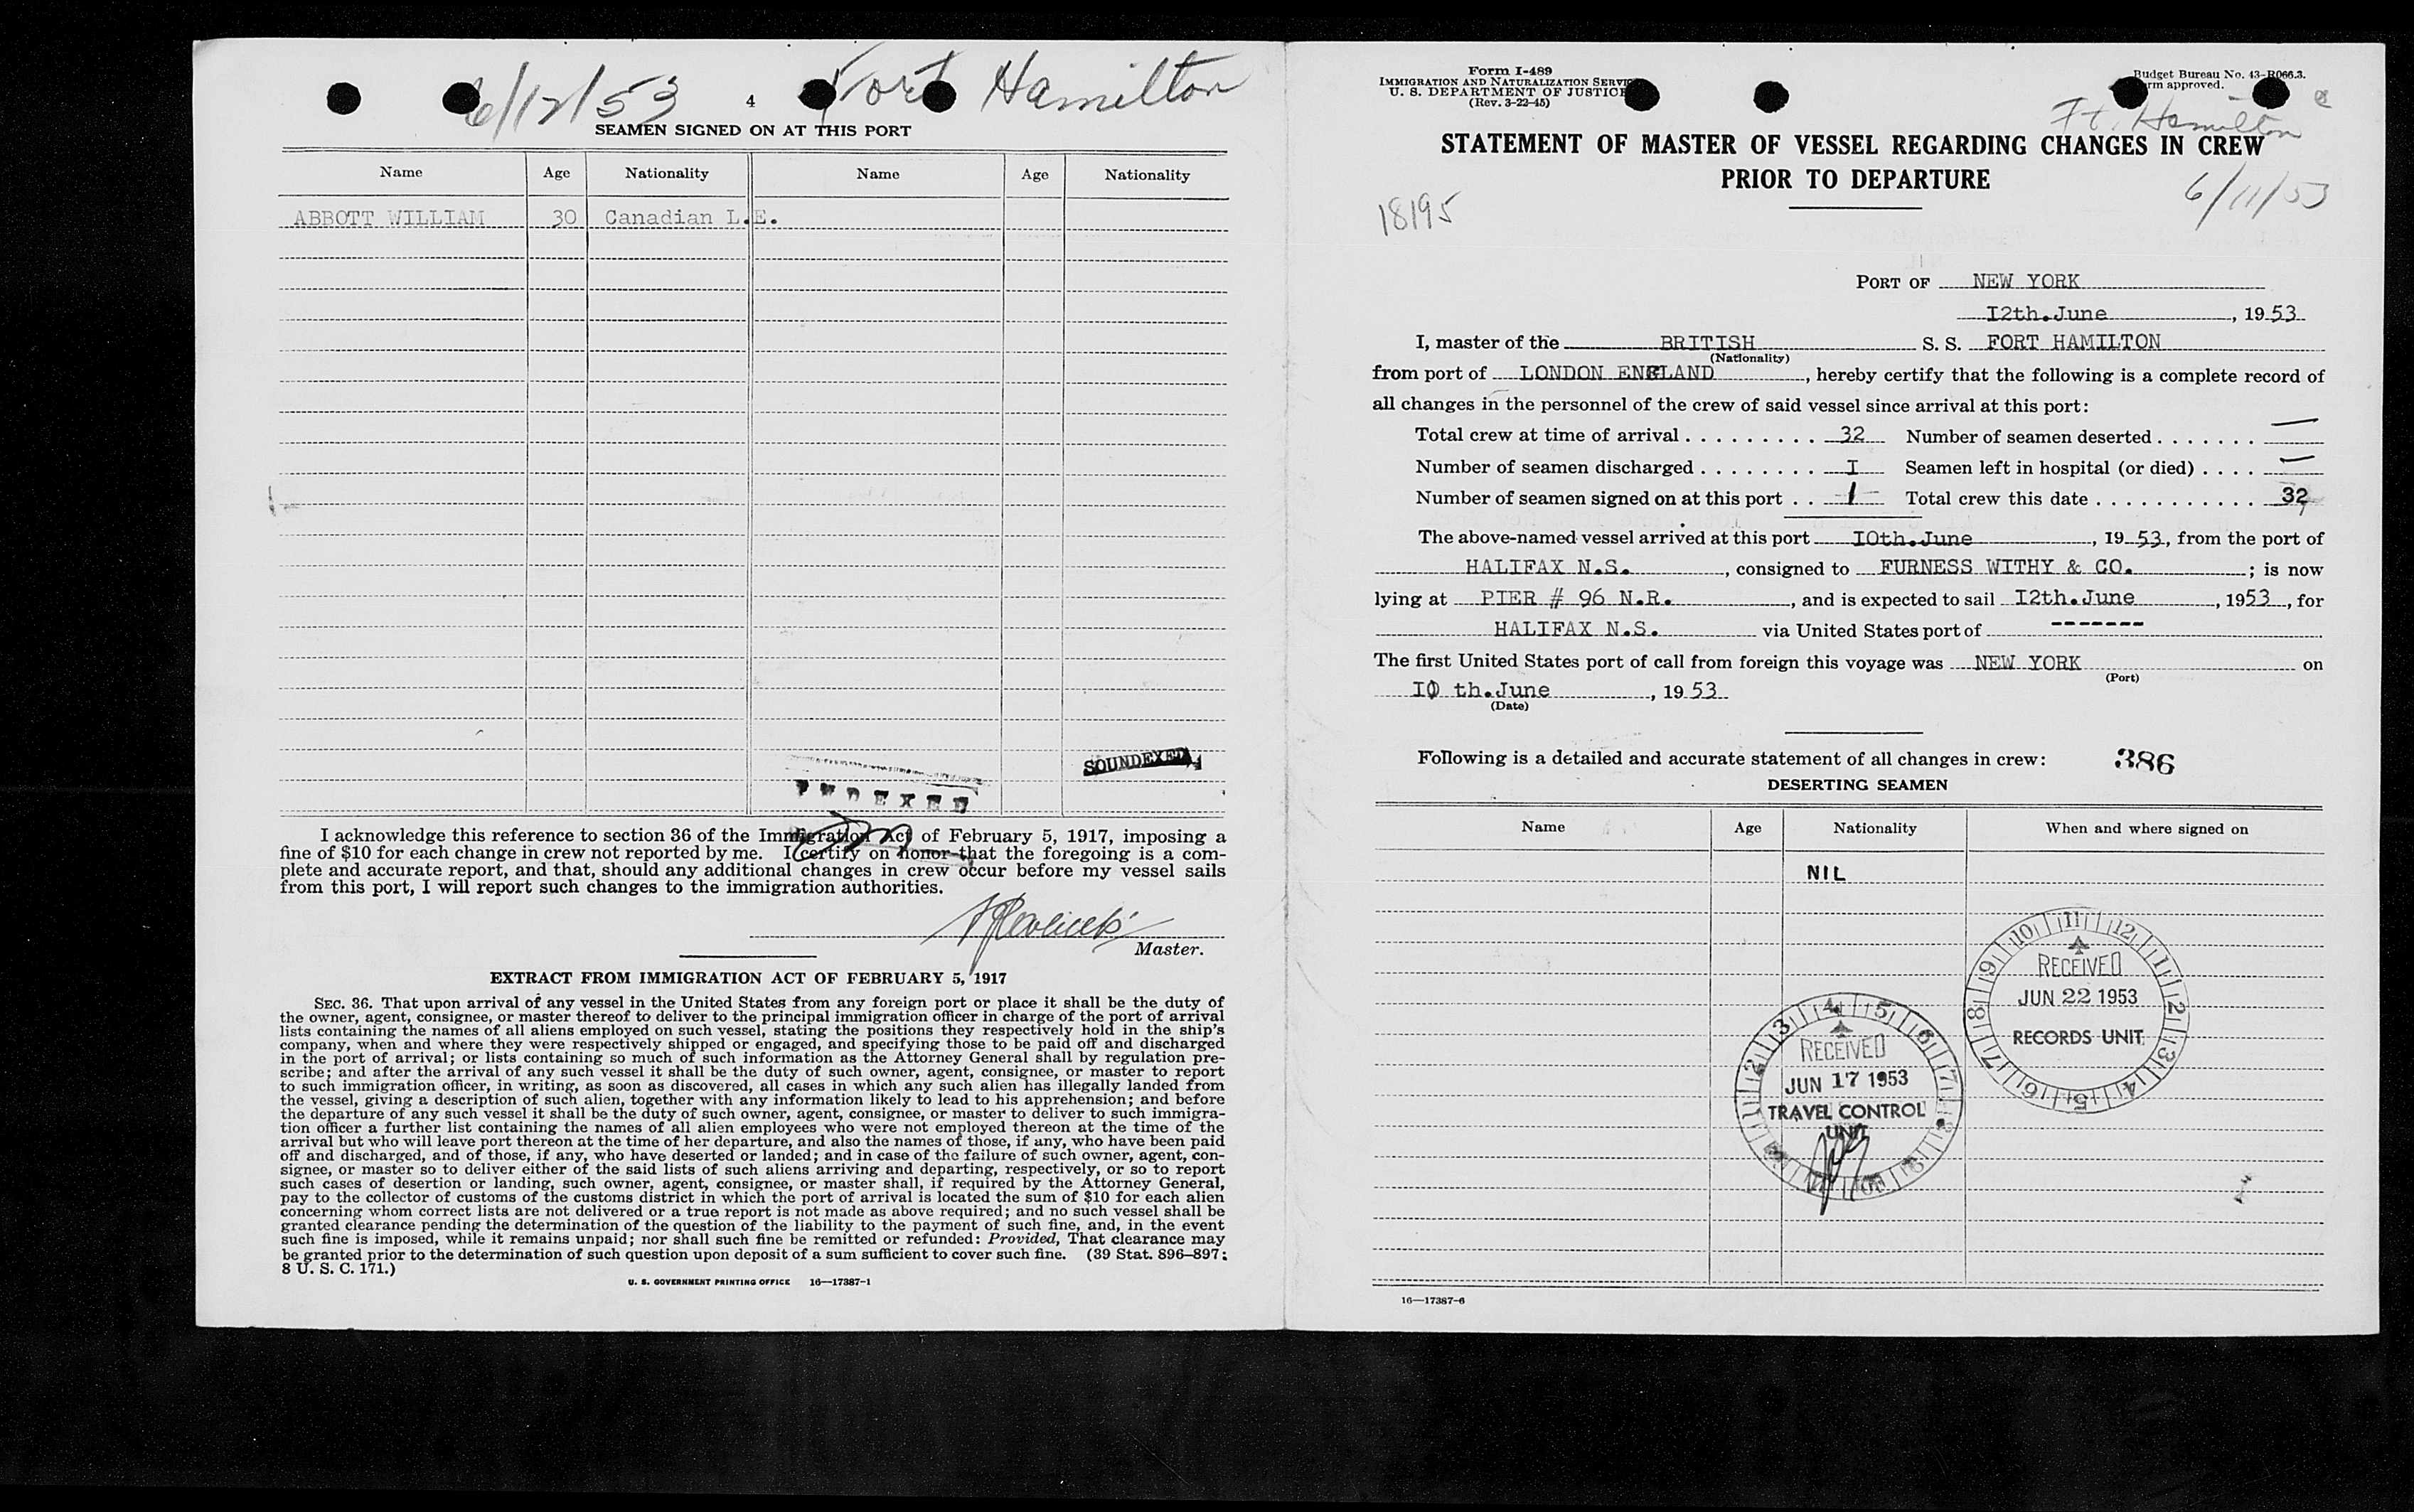 6/12/53 4 Fort Hamilton
SEAMEN SIGNED ON AT THIS PORT
Name Age Nationality Name Age Nationality
ABBOTT WILLIAM 30 Canadian L.E.
SOUNDEXED
INDEXED
I acknowledge this reference to section 36 of the Immigration Act of February 5, 1917, imposing a
fine of $10 for each change in crew not reported by me. I certify on honor that the foregoing is a com-
plete and accurate report, and that, should any additional changes in crew occur before my vessel sails
from this port, I will report such changes to the immigration authorities.
Master.
EXTRACT FROM IMMIGRATION ACT OF FEBRUARY 5, 1917
SEC. 36. That upon arrival of any vessel in the United States from any foreign port or place it shall be the duty of
the owner, agent, consignee, or master thereof to deliver to the principal immigration officer in charge of the port of arrival
lists containing the names of all aliens employed on such vessel, stating the positions they respectively hold in the ship's
company, when and where they were respectively shipped or engaged, and specifying those to be paid off and discharged
in the port of arrival; or lists containing so much of such information as the Attorney General shall by regulation pre-
scribe; and after the arrival of any such vessel it shall be the duty of such owner, agent, consignee, or master to report
to such immigration officer, in writing, as soon as discovered, all cases in which any such alien has illegally landed from
the vessel, giving a description of such alien, together with any information likely to lead to his apprehension; and before
the departure of any such vessel it shall be the duty of such owner, agent, consignee, or master to deliver to such immigra-
tion officer a further list containing the names of all alien employees who were not employed thereon at the time of the
arrival but who will leave port thereon at the time of her departure, and also the names of those, if any, who have been paid
off and discharged, and of those, if any, who have deserted or landed; and in case of the failure of such owner, agent, con-
signee, or master so to deliver either of the said lists of such aliens arriving and departing, respectively, or so to report
such cases of desertion or landing, such owner, agent, consignee, or master shall, if required by the Attorney General,
pay to the collector of customs of the customs district in which the port of arrival is located the sum of $10 for each alien
concerning whom correct lists are not delivered or a true report is not made as above required; and no such vessel shall be
granted clearance pending the determination of the question of the liability to the payment of such fine, and, in the event
such fine is imposed, while it remains unpaid; nor shall such fine be remitted or refunded: Provided, That clearance may
be granted prior to the determination of such question upon deposit of a sum sufficient to cover such fine. (39 Stat. 896–897;
8 U. S. C. 171.)
U. S. GOVERNMENT PRINTING OFFICE 16—17387-1
Form I-489
IMMIGRATION AND NATURALIZATION SERVICE
U. S. DEPARTMENT OF JUSTICE
(Rev. 3-22-45)
Budget Bureau No. 43-R066.3.
rm approved.
Ft. Hamilton
STATEMENT OF MASTER OF VESSEL REGARDING CHANGES IN CREW
PRIOR TO DEPARTURE
6/11/53
18195
PORT OF NEW YORK
I2th.June, 1953
I, master of the BRITISH S. S. FORT HAMILTON
(Nationality)
from port of LONDON ENGLAND, hereby certify that the following is a complete record of
all changes in the personnel of the crew of said vessel since arrival at this port:
Total crew at time of arrival . . . . . . . . . 32 Number of seamen deserted . . . . . . . —
Number of seamen discharged . . . . . . . . I Seamen left in hospital (or died) . . . . —
Number of seamen signed on at this port . . 1 Total crew this date . . . . . . . . . . . 32
The above-named vessel arrived at this port I0th.June, 1953, from the port of
HALIFAX N.S., consigned to FURNESS WITHY & CO.; is now
lying at PIER # 96 N.R., and is expected to sail I2th.June, 1953, for
HALIFAX N.S. via United States port of -------
The first United States port of call from foreign this voyage was NEW YORK on
(Port)
I0 th.June, 1953
(Date)
Following is a detailed and accurate statement of all changes in crew: 386
DESERTING SEAMEN
Name Age Nationality When and where signed on
NIL
RECEIVED
JUN 22 1953
RECORDS UNIT
RECEIVED
JUN 17 1953
TRAVEL CONTROL
UNIT
16—17387-6